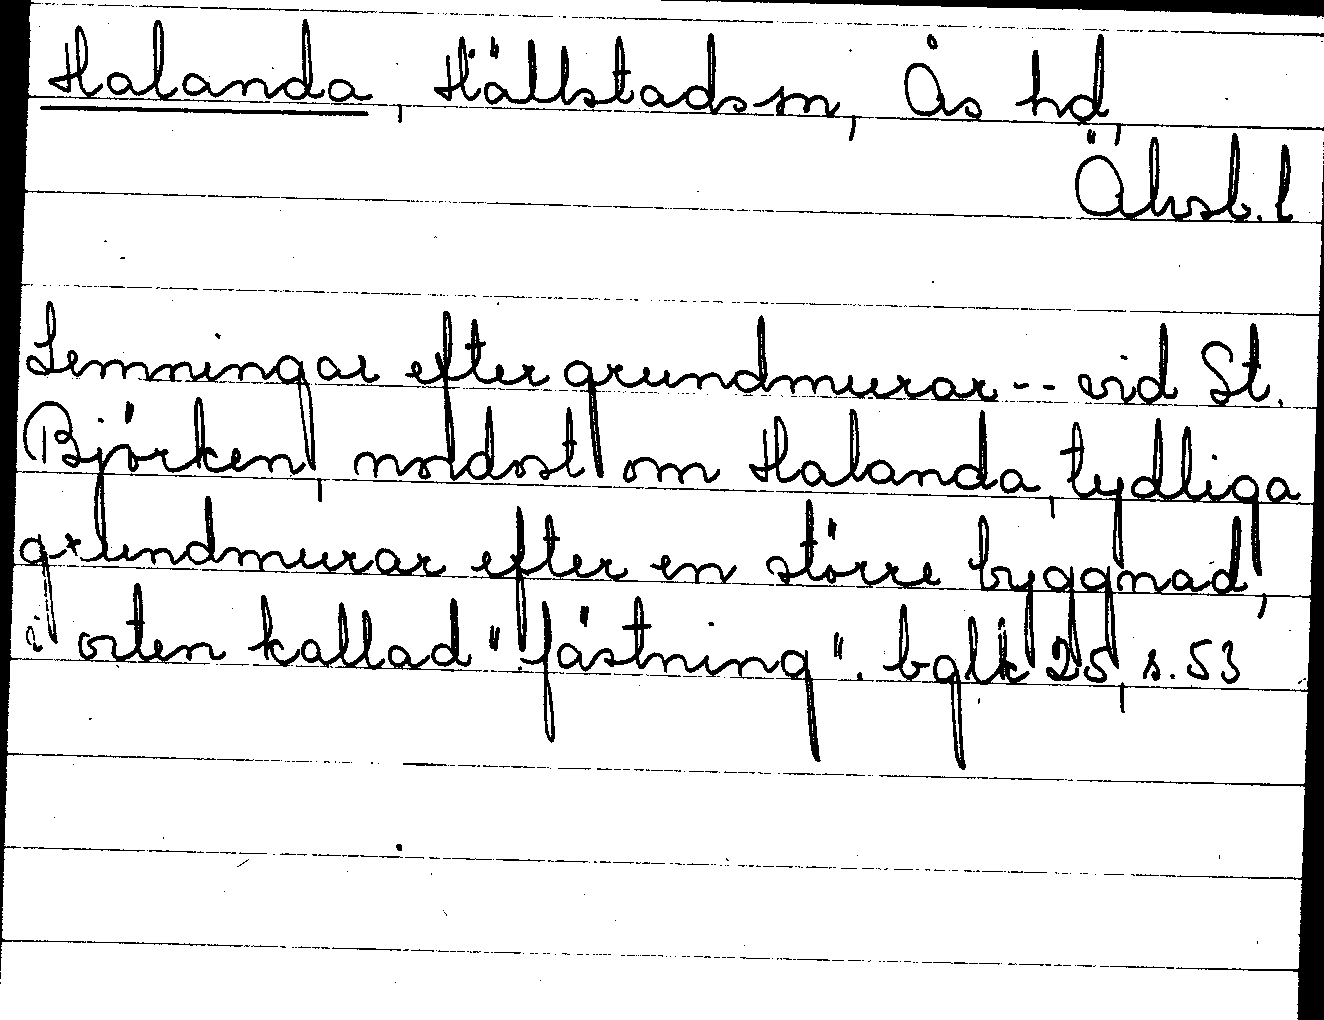 Halanda, Hällstads sn, Ås hd,
Älvsb. l
Lemningar efter grundmurar -- vid St.
Björken, nordost om Halanda, tydliga
grundmurar efter en större byggnad,
i orten kallad "fästning". bglk 25, s. 53